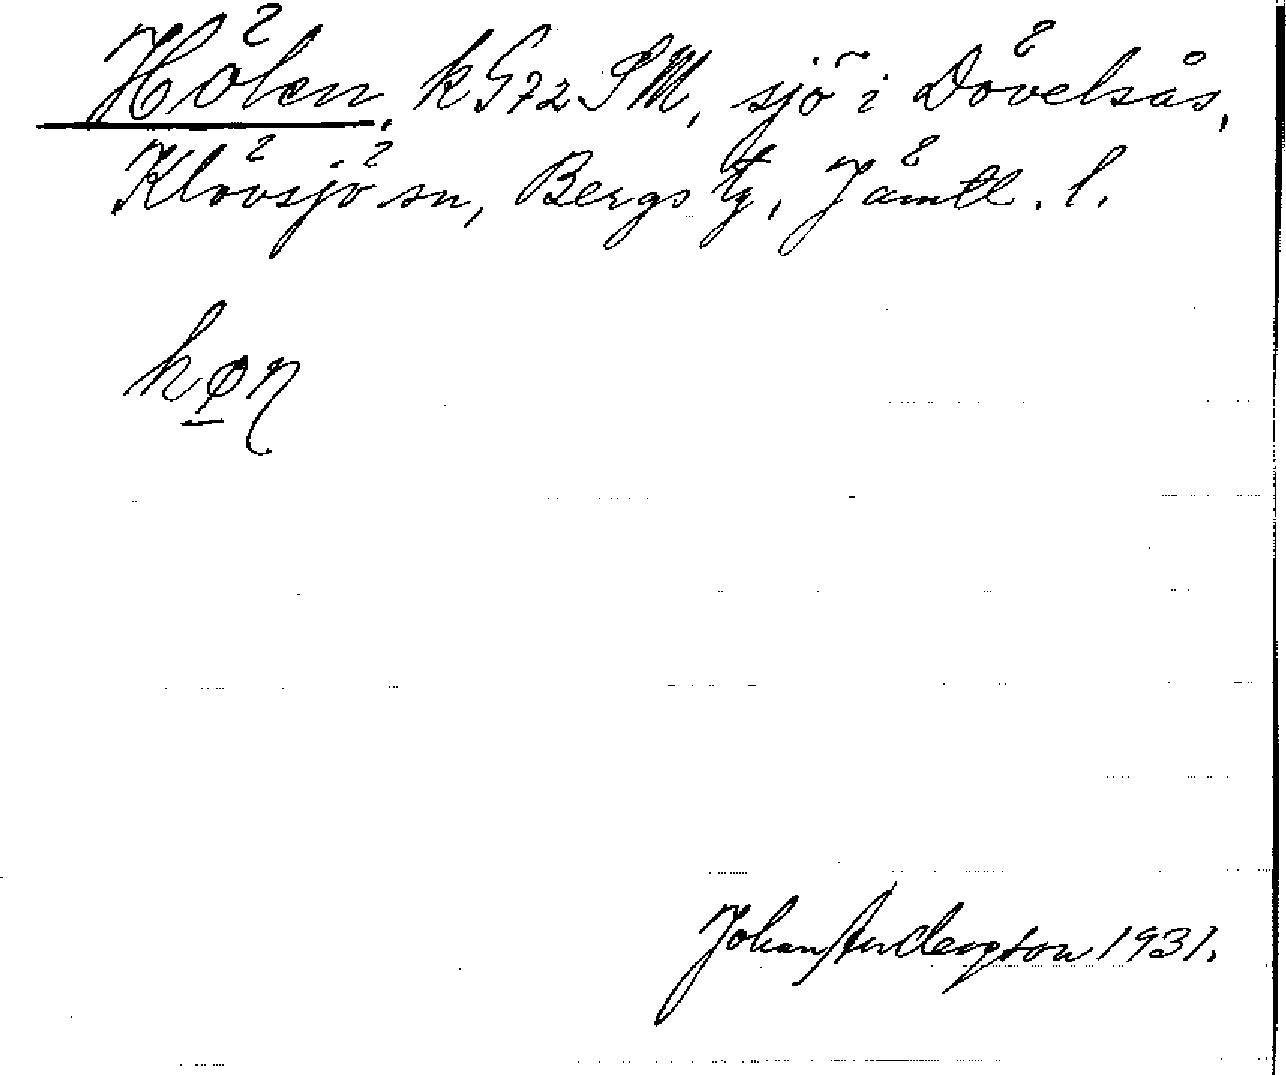 Hölen, k G72 SM, sjö i Dövelsås,
Klövsjö sn, Bergs tg, Jämtl. l.
høn
Johan Andersson 1931.